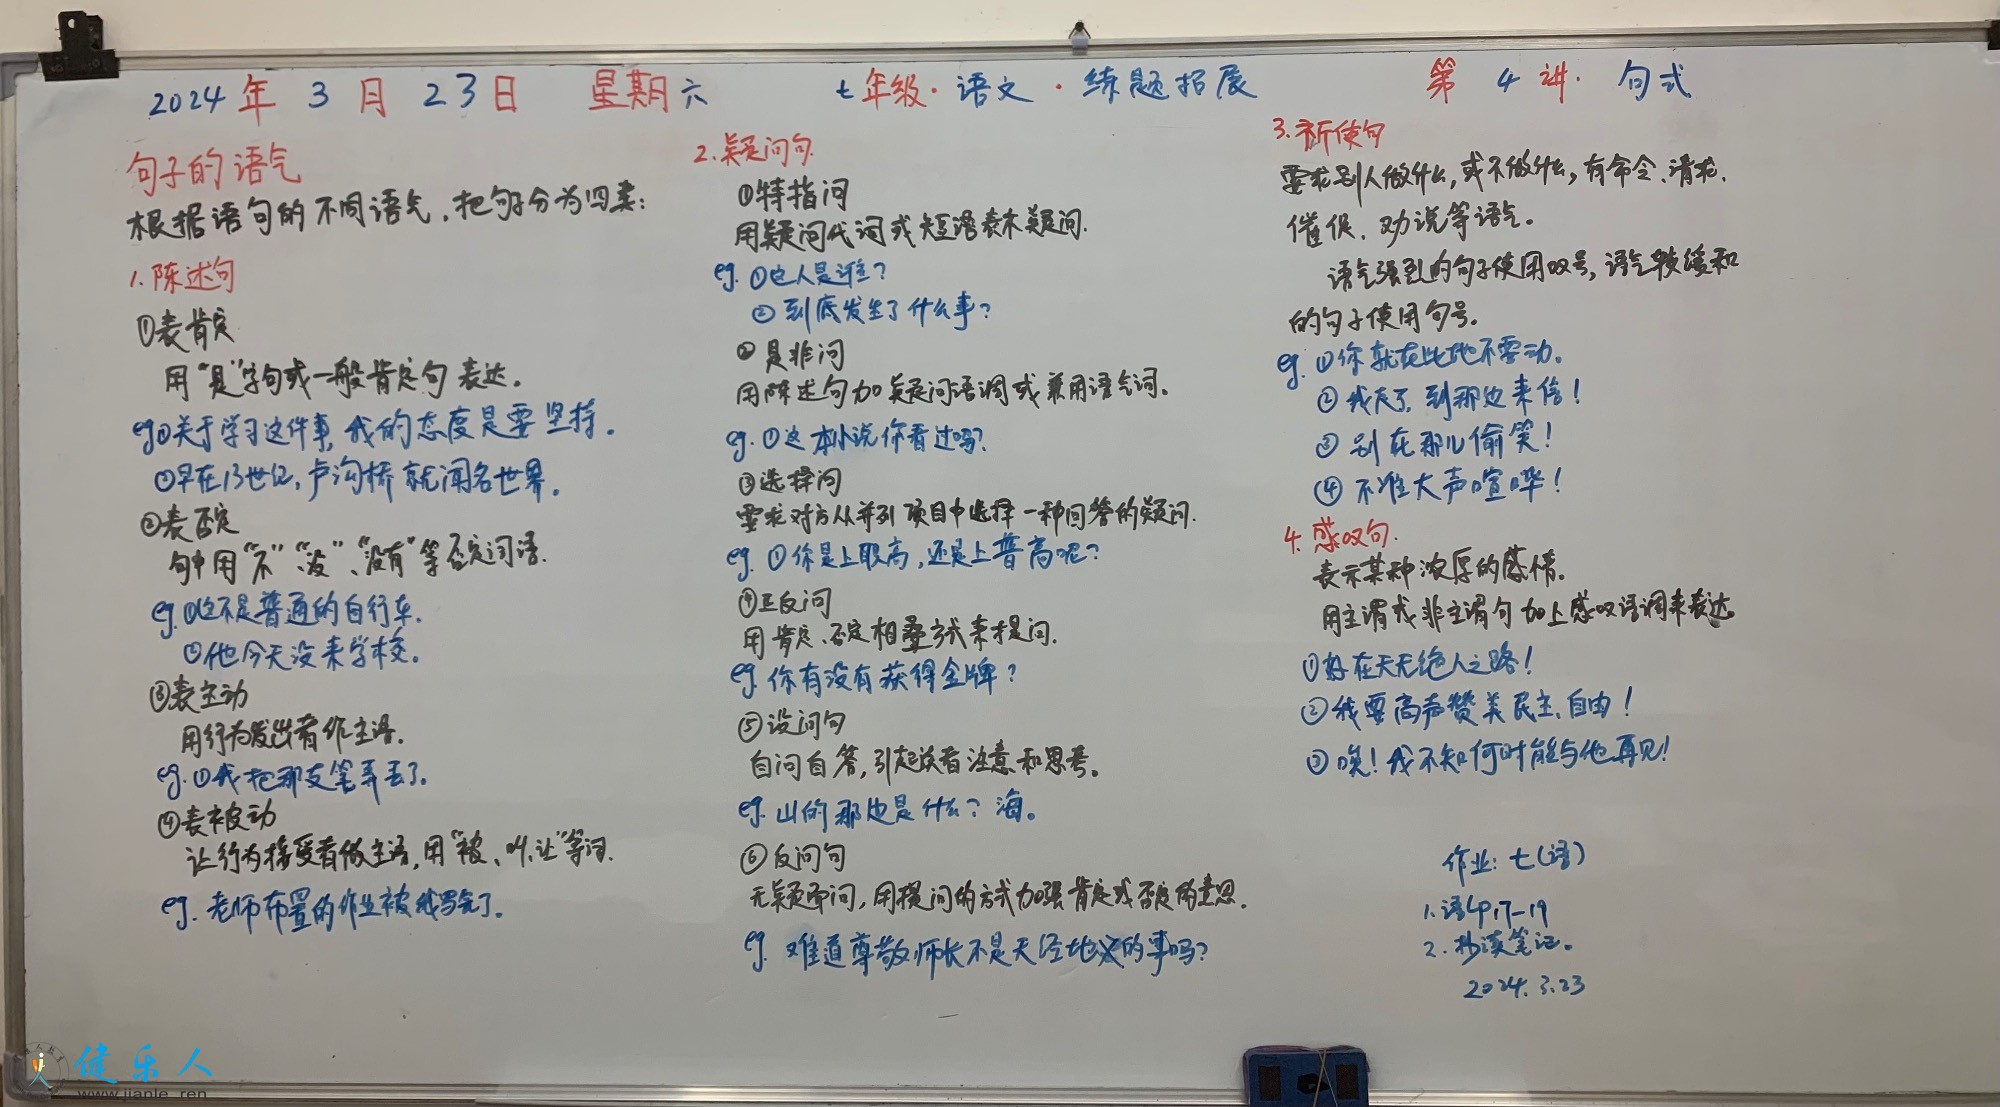 2024年3月23日 星期六 七年级·语文·练题拓展 第4讲·句式
句子的语气
根据语句的不同语气,把句子分为四类:
1.陈述句
①表肯定
用“是”字句或一般肯定句表达。
eg①关于学习这件事,我的态度是要坚持。
②早在13世纪,卢沟桥就闻名世界。
②表否定
句中用“不”、“没”、“没有”等否定词语.
eg.①这不是普通的自行车.
②他今天没来学校。
③表主动
用行为发出者作主语.
eg.①我把那支笔弄丢了。
④表被动
让行为接受者做主语,用“被、叫、让”等词.
eg.老师布置的作业被我写完了。
2.疑问句.
①特指问
用疑问代词或短语表示疑问.
eg.①这人是谁?
②到底发生了什么事?
②是非问
用陈述句加疑问语调或兼用语气词。
eg.①这本小说你看过吗?
③选择问
要求对方从并列项目中选择一种回答的疑问.
eg.①你是上职高,还是上普高呢?
④正反问
用肯定、否定相叠方式来提问.
eg.你有没有获得金牌?
⑤设问句
自问自答,引起读者注意和思考。
eg.山的那边是什么?海。
⑥反问句
无疑而问,用提问的方式加强肯定或否定的意思.
eg.难道尊敬师长不是天经地义的事吗?
3.祈使句
要求别人做什么,或不做什么,有命令、请求、
催促、劝说等语气。
语气强烈的句子使用叹号,语气较缓和
的句子使用句号。
eg.①你就在此地不要动。
②我走了,到那边来信!
③别在那儿偷笑!
④不准大声喧哗!
4.感叹句.
表示某种浓厚的感情。
用主谓或非主谓句加上感叹语调来表达。
①好在天无绝人之路!
②我要高声赞美民主、自由!
③唉!我不知何时能与他再见!
作业:七(语)
1.语4P17-19
2.抄读笔记。
2024.3.23
健乐人
www.jianle.ren